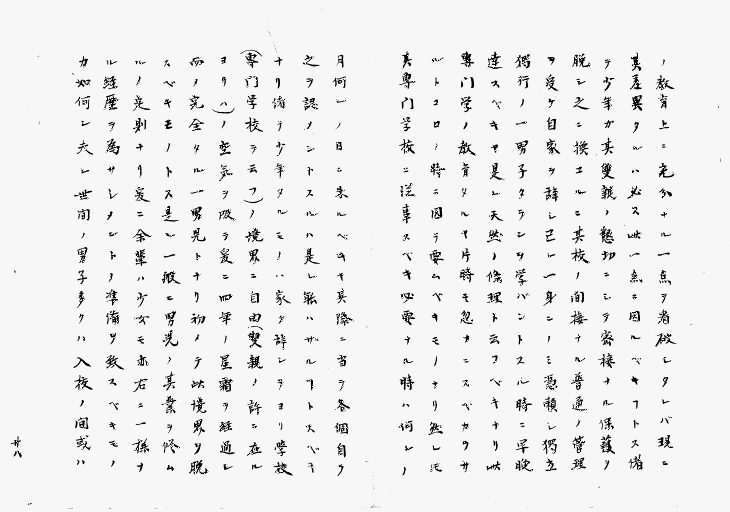 ノ教育上ニ充分ナル一点ヲ看破シタレバ現ニ
其差異タルハ必ス此一点ニ因ルベキコトス偖
テ少年ガ其双親ノ懇切ニシテ密接ナル保護ヲ
脱シ之ニ換ユルニ其校ノ間接ナル普通ノ管理
ヲ受ケ自家ヲ辞シ己レ一身ニノミ憑頼シ獨立
獨行ノ一男子タランヲ学バントスル時ニ早晩
達スベキヤ是レ天然ノ條理ト云フベキナリ此
専門学ノ教育タルヤ片時モ忽カニスベカラサ
ルトコロノ時ニ因テ要ムベキモノナリ然レ𪜈
其専門学校ニ従事スベキ必要ナル時ハ何レノ
月何レノ日ニ来ルベキヤ其際ニ当テ各個自ラ
之ヲ認ノントスルハ是レ能ハザルコトスベキ
ナリ偖テ少年タルモノハ家ヲ辞シテヨリ学校
（専門学校ヲ云フ）ノ境界ニ自由（雙親ノ許ニ在ル
ヨリハ）ノ空気ヲ吸ヲ爰ニ四年ノ星霜ヲ経過シ
而ノ完全タル一男児トナリ初ノテ此境界ヲ脱
スベキモノトス是レ一般ニ男児ノ其業ヲ修ム
ルノ定則ナリ爰ニ余輩ハ少女モ亦右ニ一様ナ
ル経歴ヲ為サシメントノ準備ヲ致スベキモノ
カ如何ン夫レ世間ノ男子多クハ入校ノ間或ハ
廿八